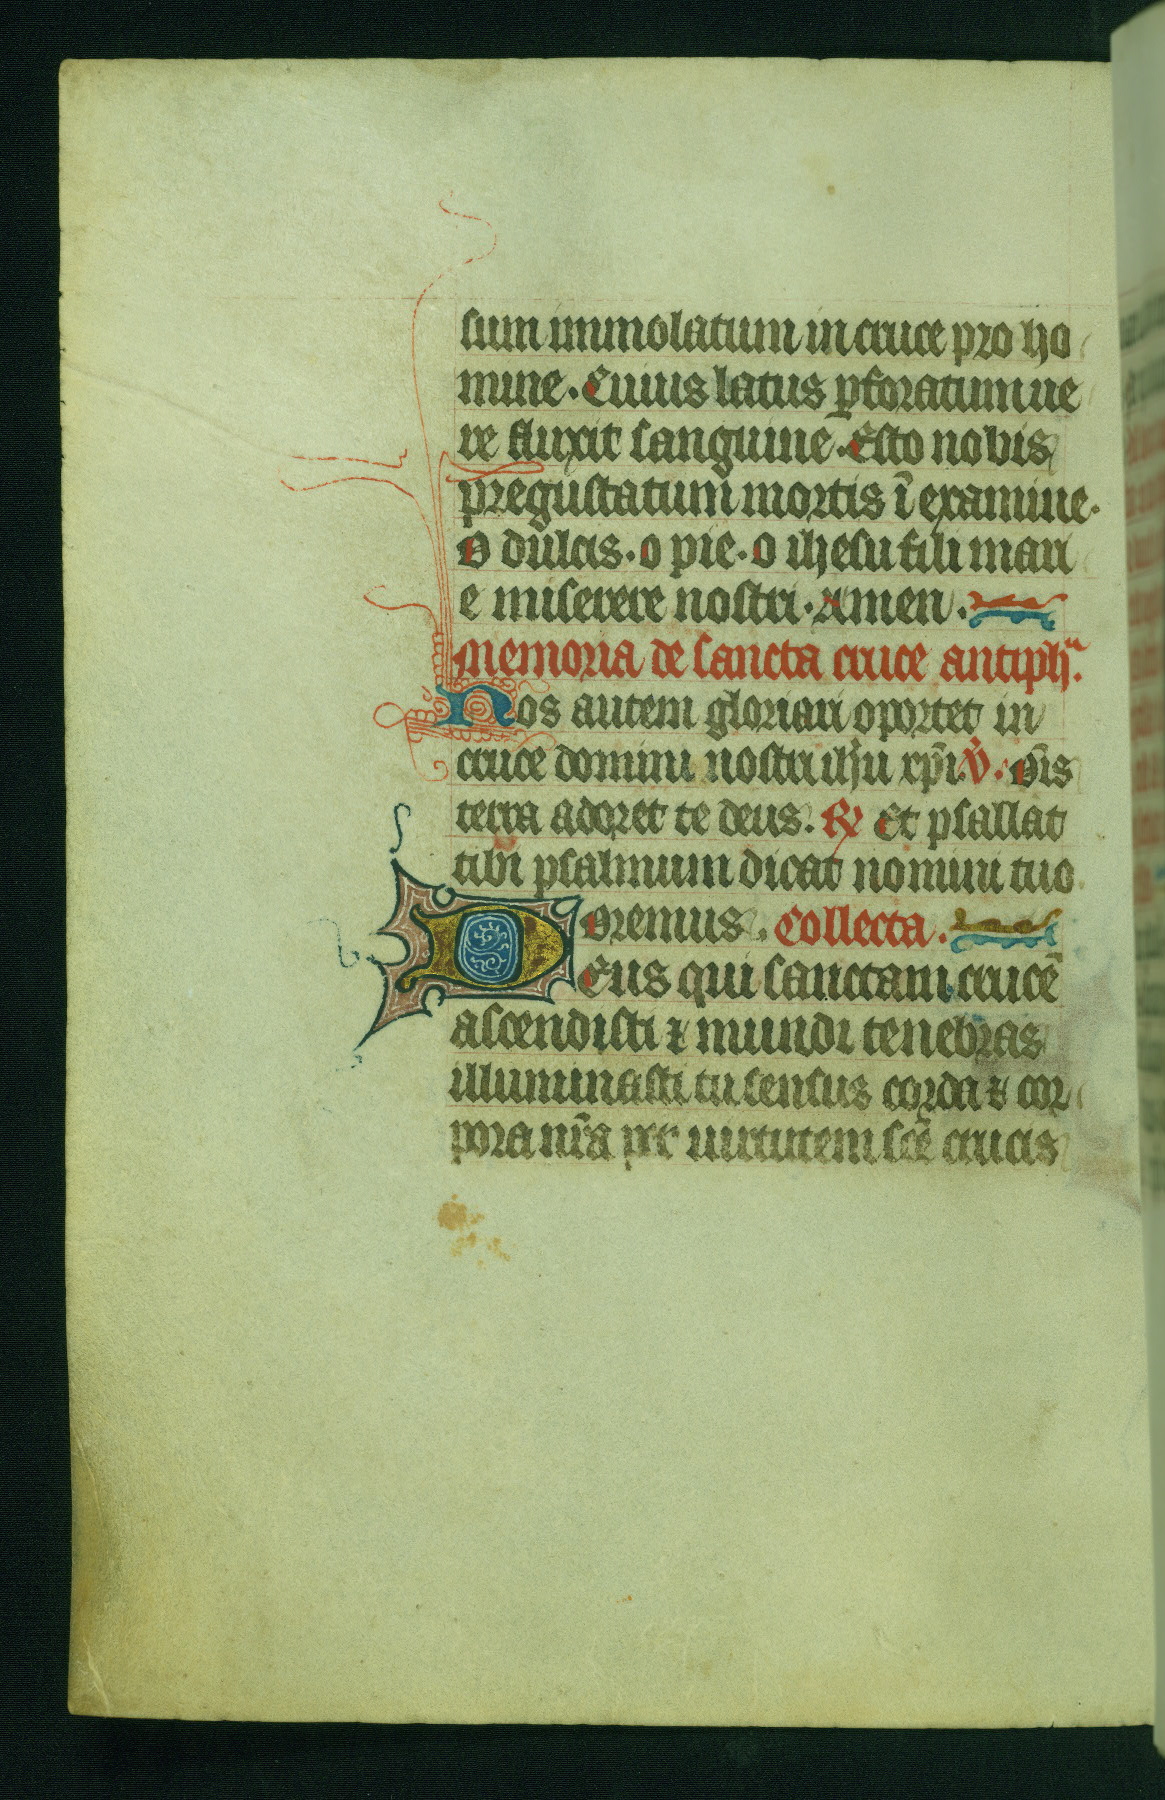 sum immolatum in cruce pro ho
mine. Cuius latus ꝑforatum ue
re fluxit sanguine. Esto nobis
pregustatum mortis ī examine.
O dulcis. o pie. o ihesu fili mari
e miserere nostri. Amen.
Memoria de sancta cruce antiphᵃ.
Nos autem gloriari oportet in
cruce domini nostri ihū xp̄i. V̓. Om̄s
terra adoret te deus. ℞ Et psallat
tibi psalmum dicat nomini tuo
Oremus. Collecta.
DEus qui sanctam crucē
ascendisti ⁊ mundi tenebras
illuminasti tu sensus corda ⁊ cor
pora nr̄a per uirtutem scē crucis